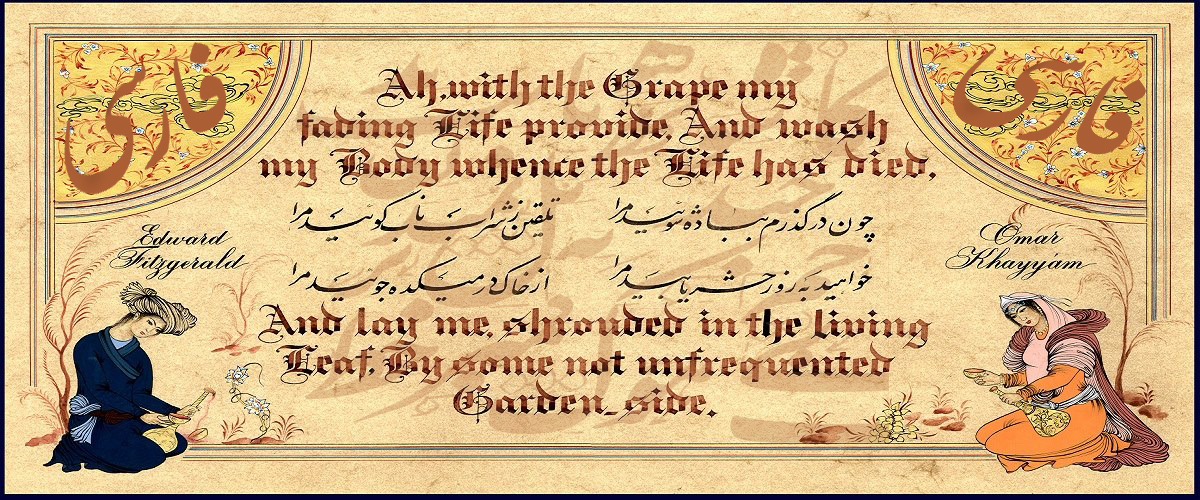 فارسی
فارسی
Ah, with the Grape my
fading Life provide, And wash
my Body whence the Life has died,
چون درگذرم بباده شوئید مرا
تلقین ز شراب ناب گوئید مرا
Edward
Fitzgerald
Omar
Khayyám
خواهید به روز حشر یابید مرا
از خاک در میکده جوئید مرا
And lay me, shrouded in the living
Leaf, By some not unfrequented
Garden-side.